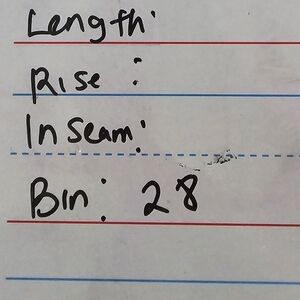 Length:
Rise :
Inseam:
Bin: 28